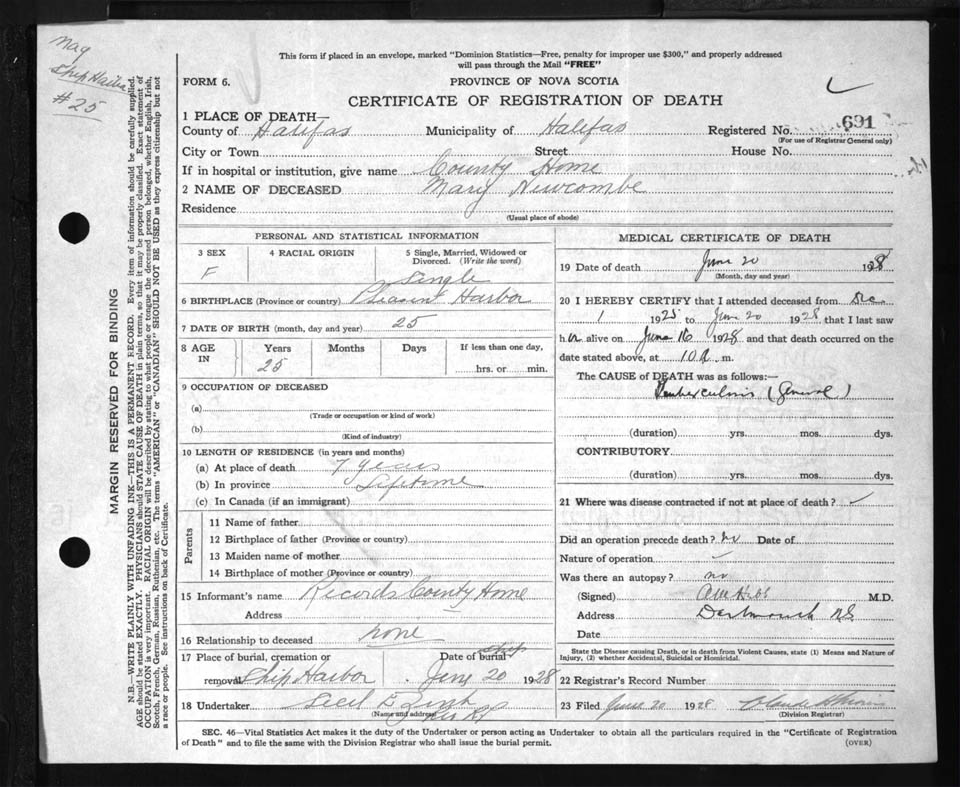 May
Ship Harbor
#25
This form if placed in an envelope, marked "Dominion Statistics—Free, penalty for improper use $300," and properly addressed
will pass through the Mail "FREE"
FORM 6.
PROVINCE OF NOVA SCOTIA
CERTIFICATE OF REGISTRATION OF DEATH
1 PLACE OF DEATH—
County of Halifax Municipality of Halifax Registered No. 691
(For use of Registrar General only)
City or Town Street House No.
If in hospital or institution, give name County Home
2 NAME OF DECEASED Mary Newcombe
Residence
(Usual place of abode)
PERSONAL AND STATISTICAL INFORMATION
3 SEX 4 RACIAL ORIGIN 5 Single, Married, Widowed or
Divorced. (Write the word)
F Single
6 BIRTHPLACE (Province or country) Pleasant Harbor
7 DATE OF BIRTH (month, day and year) 25
8 AGE IN Years Months Days If less than one day,
25 hrs. or min.
9 OCCUPATION OF DECEASED
(a)
(Trade or occupation or kind of work)
(b)
(Kind of industry)
10 LENGTH OF RESIDENCE (in years and months)
(a) At place of death 7 years
(b) In province Lifetime
(c) In Canada (if an immigrant)
Parents
11 Name of father
12 Birthplace of father (Province or country)
13 Maiden name of mother
14 Birthplace of mother (Province or country)
15 Informant's name Records County Home
Address
16 Relationship to deceased none
17 Place of burial, cremation or Date of burial
ship
removal Ship Harbor June 20 1928
18 Undertaker
(Name and address)
MEDICAL CERTIFICATE OF DEATH
19 Date of death June 20 1928
(Month, day and year)
20 I HEREBY CERTIFY that I attended deceased from Dec.
1 1925 to June 20 1928 that I last saw
her alive on June 16 1928 and that death occurred on the
date stated above, at 10 a. m.
The CAUSE of DEATH was as follows:—
Tuberculosis (General)
(duration) yrs. mos. dys.
CONTRIBUTORY
(duration) yrs. mos. dys.
21 Where was disease contracted if not at place of death?
Did an operation precede death? no Date of
Nature of operation
Was there an autopsy? no
(Signed) M.D.
Address Dartmouth N.S.
Date
State the Disease causing Death, or in death from Violent Causes, state (1) Means and Nature of
Injury, (2) whether Accidental, Suicidal or Homicidal.
22 Registrar's Record Number
23 Filed June 20 1928
(Division Registrar)
SEC. 46—Vital Statistics Act makes it the duty of the Undertaker or person acting as Undertaker to obtain all the particulars required in the "Certificate of Registration
of Death" and to file the same with the Division Registrar who shall issue the burial permit.
(OVER)
MARGIN RESERVED FOR BINDING
N.B.—WRITE PLAINLY WITH UNFADING INK—THIS IS A PERMANENT RECORD. Every item of information should be carefully supplied.
AGE should be stated EXACTLY. PHYSICIANS should STATE CAUSE OF DEATH in plain terms, so that it may be properly classified. Exact statement of
OCCUPATION is very important. RACIAL ORIGIN will be described by stating to what people or tongue the deceased person belonged, whether English, Irish,
Scotch, French, German, Russian, Ruthenian, etc. The terms "AMERICAN" or "CANADIAN" SHOULD NOT BE USED as they express citizenship but not
a race or people. See instructions on back of Certificate.